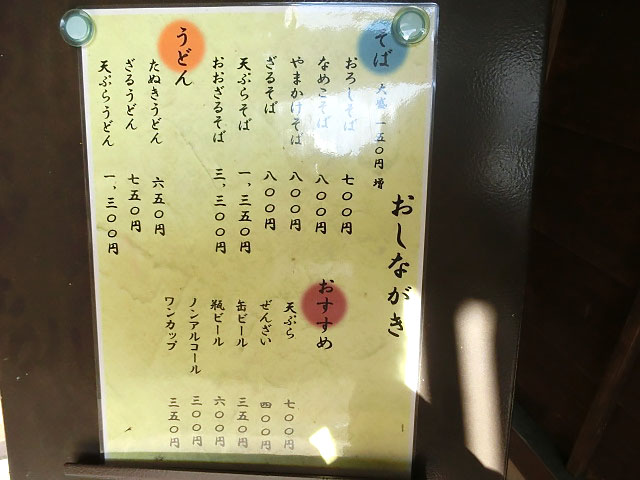 おしながき
そば 大盛 一五〇円 増
おろしそば 七〇〇円
なめこそば 八〇〇円
やまかけそば 八〇〇円
ざるそば 八〇〇円
天ぷらそば 一、三五〇円
おおざるそば 三、三〇〇円
うどん
たぬきうどん 六五〇円
ざるうどん 七五〇円
天ぷらうどん 一、三〇〇円
おすすめ
天ぷら 七〇〇円
ぜんざい 四〇〇円
缶ビール 三五〇円
瓶ビール 六〇〇円
ノンアルコール 三〇〇円
ワンカップ 三五〇円